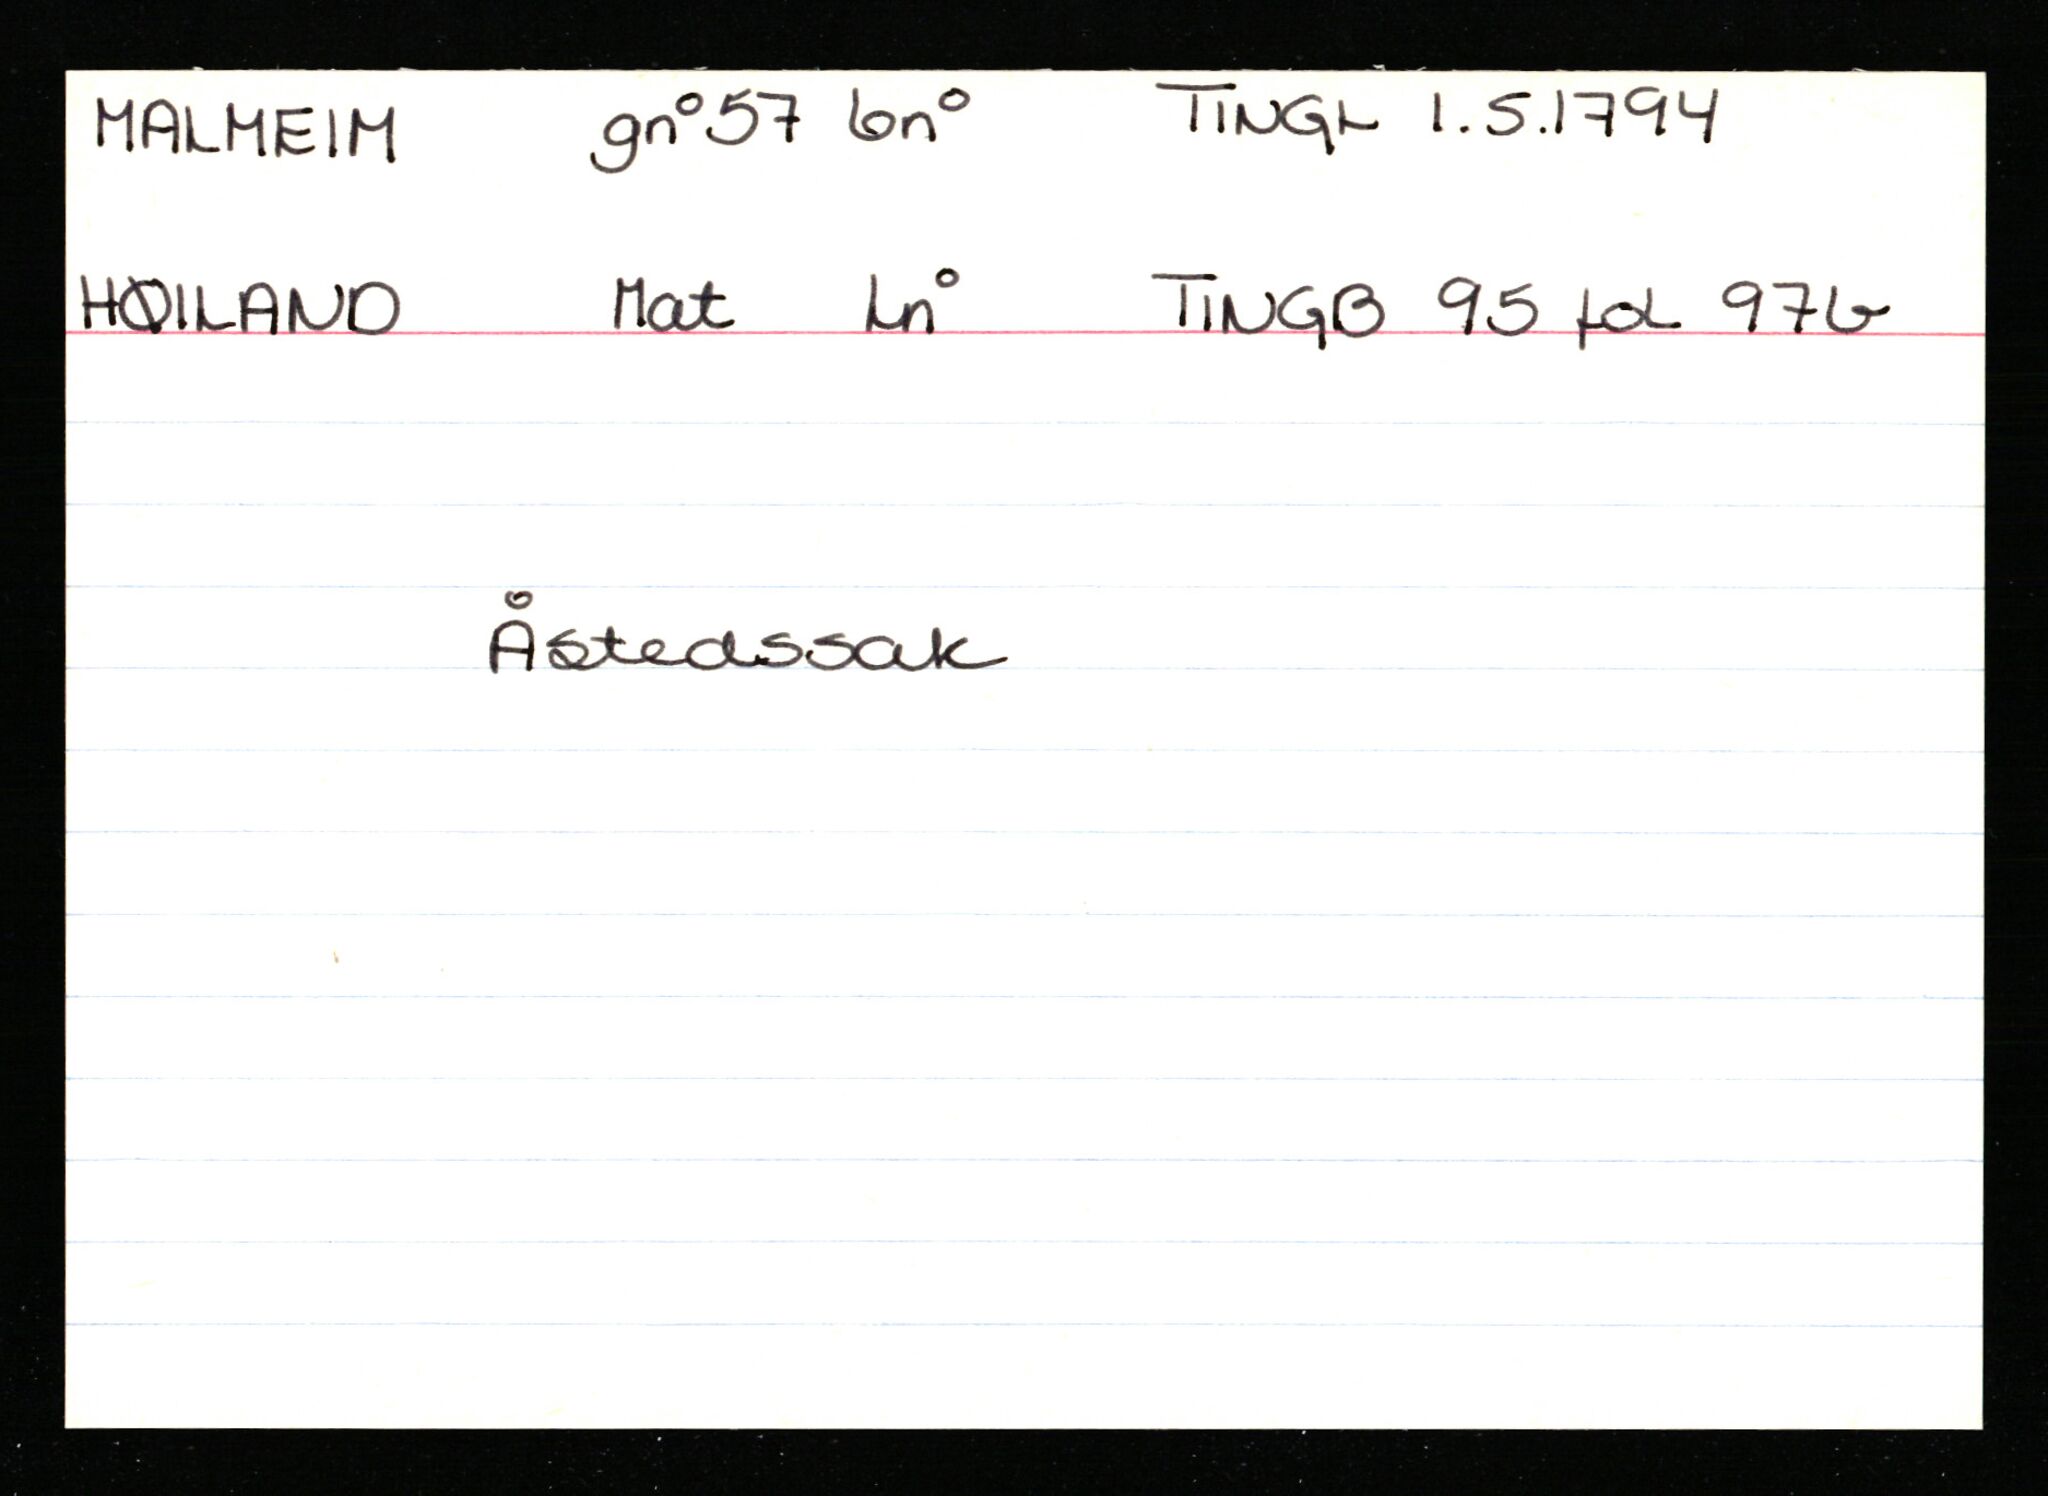 MALMEIM gn° 57 bn° TINGL 1.5.1794
HØILAND Mat Ln° TINGB 95 fol 97b
Åstedssak